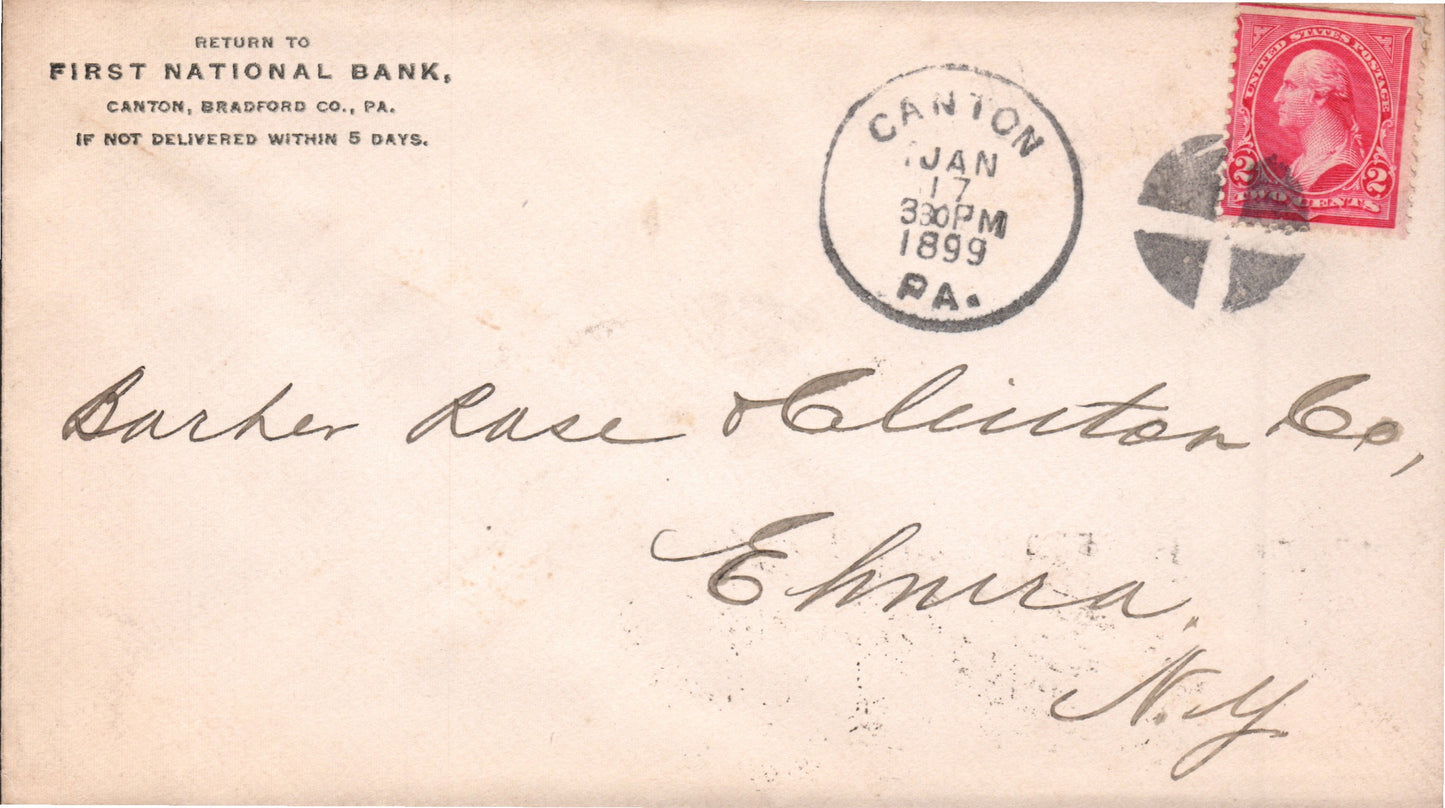 RETURN TO
FIRST NATIONAL BANK,
CANTON, BRADFORD CO., PA.
IF NOT DELIVERED WITHIN 5 DAYS.
CANTON
JAN
17
330PM
1899
PA.
UNITED STATES POSTAGE
2 2
TWO CENTS
Barker Rose & Clinton Co,
Elmira.
N.Y.